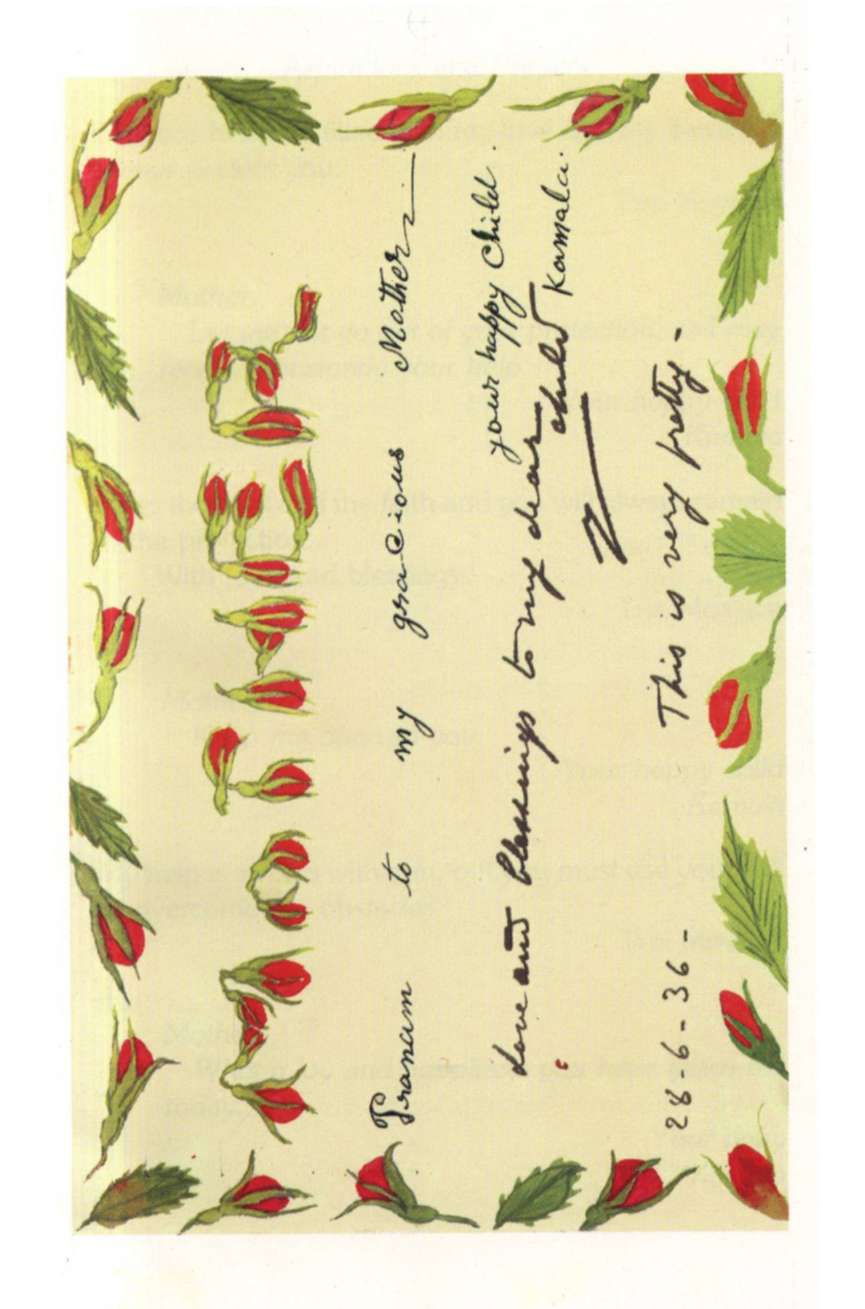 MOTHER
Pranam to my gracious Mother —
your happy child.
Kamala.
Love and blessings to my dear child
This is very pretty -
28-6-36-